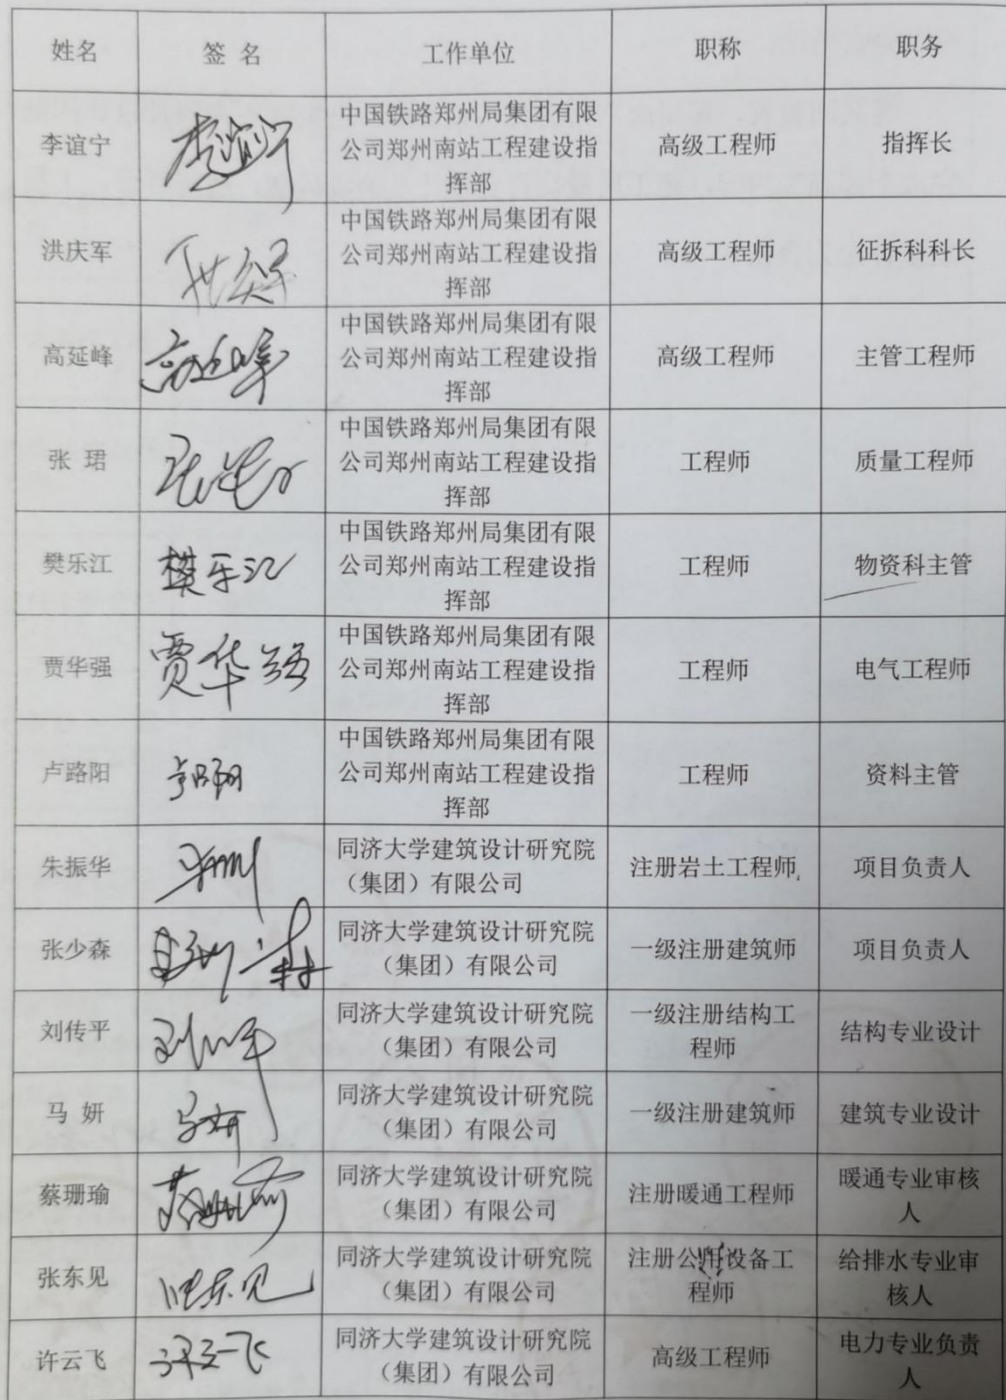 姓名 签 名 工作单位 职称 职务
李谊宁 李谊宁 中国铁路郑州局集团有限
公司郑州南站工程建设指
挥部 高级工程师 指挥长
洪庆军 中国铁路郑州局集团有限
公司郑州南站工程建设指
挥部 高级工程师 征拆科科长
高延峰 高延峰 中国铁路郑州局集团有限
公司郑州南站工程建设指
挥部 高级工程师 主管工程师
张 珺 中国铁路郑州局集团有限
公司郑州南站工程建设指
挥部 工程师 质量工程师
樊乐江 樊乐江 中国铁路郑州局集团有限
公司郑州南站工程建设指
挥部 工程师 物资科主管
贾华强 贾华强 中国铁路郑州局集团有限
公司郑州南站工程建设指
挥部 工程师 电气工程师
卢路阳 中国铁路郑州局集团有限
公司郑州南站工程建设指
挥部 工程师 资料主管
朱振华 同济大学建筑设计研究院
（集团）有限公司 注册岩土工程师 项目负责人
张少森 同济大学建筑设计研究院
（集团）有限公司 一级注册建筑师 项目负责人
刘传平 同济大学建筑设计研究院
（集团）有限公司 一级注册结构工
程师 结构专业设计
马 妍 马妍 同济大学建筑设计研究院
（集团）有限公司 一级注册建筑师 建筑专业设计
蔡珊瑜 同济大学建筑设计研究院
（集团）有限公司 注册暖通工程师 暖通专业审核
人
张东见 张东见 同济大学建筑设计研究院
（集团）有限公司 注册公用设备工
程师 给排水专业审
核人
许云飞 许云飞 同济大学建筑设计研究院
（集团）有限公司 高级工程师 电力专业负责
人